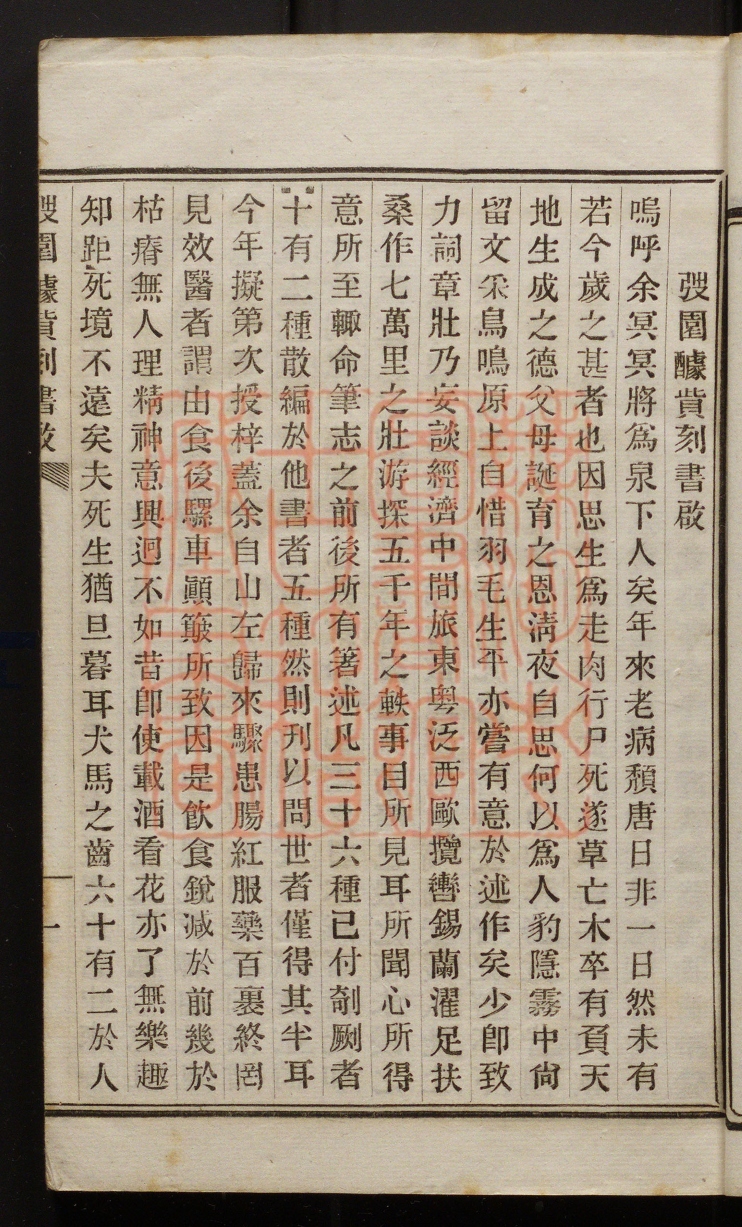 弢園醵貲刻書啟
嗚呼余冥冥將爲泉下人矣年來老病頹唐日非一日然未有
若今歲之甚者也因思生爲走肉行尸死遂草亡木卒有負天
地生成之德父母誕育之恩淸夜自思何以爲人豹隱霧中尙
留文采鳥鳴原上自惜羽毛生平亦嘗有意於述作矣少卽致
力詞章壯乃妄談經濟中間旅東粵泛西歐攬轡錫蘭濯足扶
桑作七萬里之壯游探五千年之軼事目所見耳所聞心所得
意所至輙命筆志之前後所有著述凡三十六種已付剞劂者
十有二種散編於他書者五種然則刊以問世者僅得其半耳
今年擬第次授梓蓋余自山左歸來驟患腸紅服藥百裹終罔
見效醫者謂由食後騾車顚簸所致因是飮食銳減於前幾於
枯瘠無人理精神意興迥不如昔卽使載酒看花亦了無樂趣
知距死境不遠矣夫死生猶旦暮耳犬馬之齒六十有二於人
弢園醵貲刻書啟
一